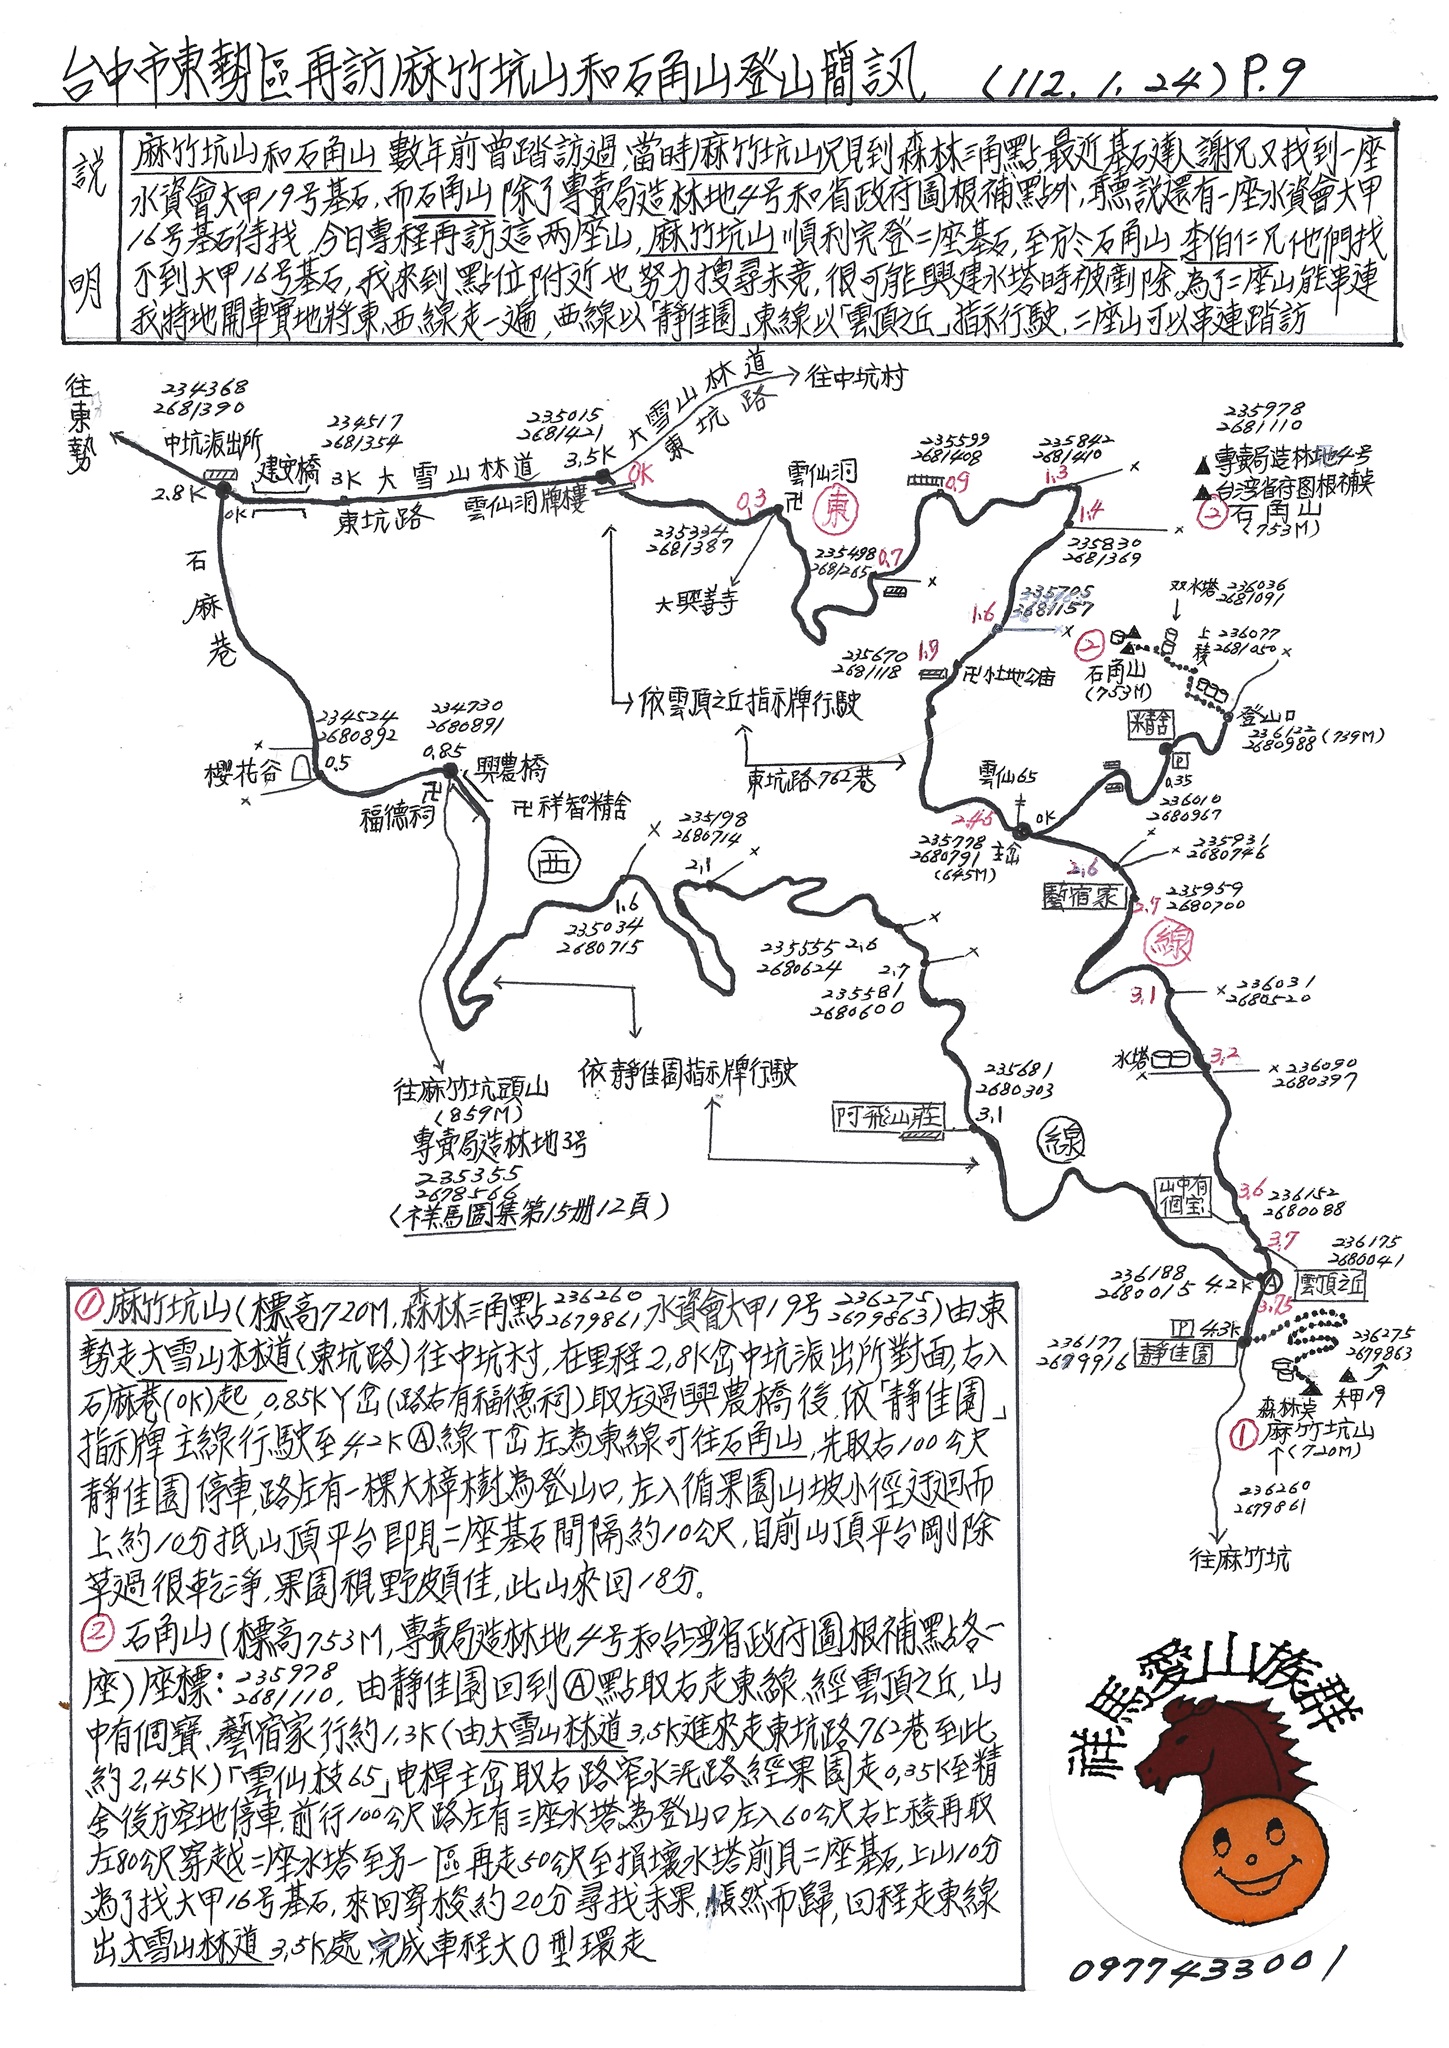 台中市東勢區再訪麻竹坑山和石角山登山簡訊 (112.1.24) P.9
說明
麻竹坑山和石角山數年前曾踏訪過,當時麻竹坑山只見到森林三角點最近基石達人謝兄又找到一座
水資會大甲19号基石,而石角山除了專賣局造林地4号和省政府圖根補點外,聽說還有一座水資會大甲
16号基石待找,今日專程再訪這兩座山,麻竹坑山順利完登二座基石,至於石角山李伯仁兄他們找
不到大甲16号基石,我來到點位附近也努力搜尋未竟,很可能興建水塔時被剷除,為了二座山能串連
我特地開車實地將東、西線走一遍,西線以「靜佳園」東線以「雲頂之丘」指示行駛,二座山可以串連踏訪
往東勢
234368
2681390
中坑派出所
2.8K
0K
建安橋
234517
2681354
3K
大雪山林道
東坑路
235015
2681421
3.5K
0K
雲仙洞牌樓
大雪山林道
東坑路
往中坑村
235334
2681387
0.3
雲仙洞
卍
東
大興善寺
235498
2681265
0.7
235599
2681408
0.9
235842
2681410
1.3
1.4
235830
2681369
235978
2681110
▲專賣局造林地4号
▲台湾省府図根補点
② 石角山
(753M)
235705
2681157
1.6
235670
2681118
1.7
卍小土地公庙
②
石角山
(753M)
双水塔
236036
2681091
上稜
236077
2681050
登山口
236122
2680988 (739M)
精舍
P
0.35
236010
2680967
石麻巷
依雲頂之丘指示牌行駛
東坑路762巷
雲仙65
0K
2.45
235778
2680791
(645M)
主岔
235931
2680746
2.6
藝宿家
2.7
235959
2680700
線
3.1
236031
2680520
水塔
3.2
236090
2680397
234524
2680892
櫻花谷
0.5
234730
2680891
0.85
興農橋
卍
福德祠
卍祥智精舍
西
235198
2680714
1.6
235034
2680715
2.1
235555
2680624
2.6
2.7
235581
2680600
往麻竹坑頭山
(859M)
專賣局造林地3号
235355
2678566
(祥馬圖集第15册12頁)
依靜佳園指示牌行駛
235681
2680303
阿飛山莊
3.1
線
山中有個宝
3.6
236152
2680088
3.7
236175
2680041
236188
2680015
4.2K
A
雲頂之丘
3.75
P 4.3K
236177
2679916
靜佳園
236275
2679863
大甲19
森林点
① 麻竹坑山
(720M)
236260
2679861
往麻竹坑
① 麻竹坑山(標高720M,森林三角點236260 2679861,水資會大甲19号236275 2679863)由東
勢走大雪山林道(東坑路)往中坑村,在里程2.8K岔中坑派出所對面,右入
石麻巷(0K)起,0.85KY岔(路右有福德祠)取左過興農橋後,依「靜佳園」
指示牌主線行駛至4.2KⒶ線丁岔左為東線可往石角山,先取右100公尺
靜佳園停車,路左有一棵大樟樹為登山口,左入循果園山坡小徑迂迴而
上約10分抵山頂平台即見二座基石間隔約10公尺,目前山頂平台剛除
草過很乾淨,果園視野頗佳,此山來回18分。
② 石角山(標高753M,專賣局造林地4号和台湾省政府圖根補點各一
座)座標:235978 2681110,由靜佳園回到Ⓐ點取右走東線、經雲頂之丘,山
中有個寶、藝宿家行約1.3K(由大雪山林道3.5K進來走東坑路762巷至此
約2.45K)「雲仙枝65」电桿主岔取右路窄水泥路經果園走0.35K至精
舍後方空地停車,前行100公尺路左有三座水塔為登山口左入60公尺右上稜再取
左80公尺穿越二座水塔至另一區再走50公尺至損壞水塔前見二座基石,上山10分
為了找大甲16号基石,來回穿梭約20分尋找未果,悵然而歸,回程走東線
出大雪山林道3.5K處,完成車程大O型環走
祥馬愛山族群
0977433001